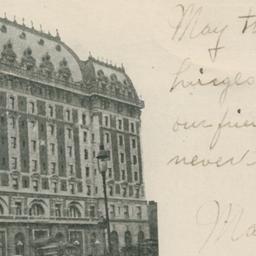 May th
hinges
our frie
never
Ma